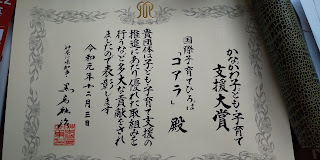 かながわ子ども・子育て
支援大賞
国際子育てひろば
「コアラ」 殿
貴団体は子ども・子育て支援の
推進にあたり優れた取組みを
行うなど多大な貢献をされ
ましたので表彰します
令和元年十二月三日
神奈川県知事 黒岩祐治